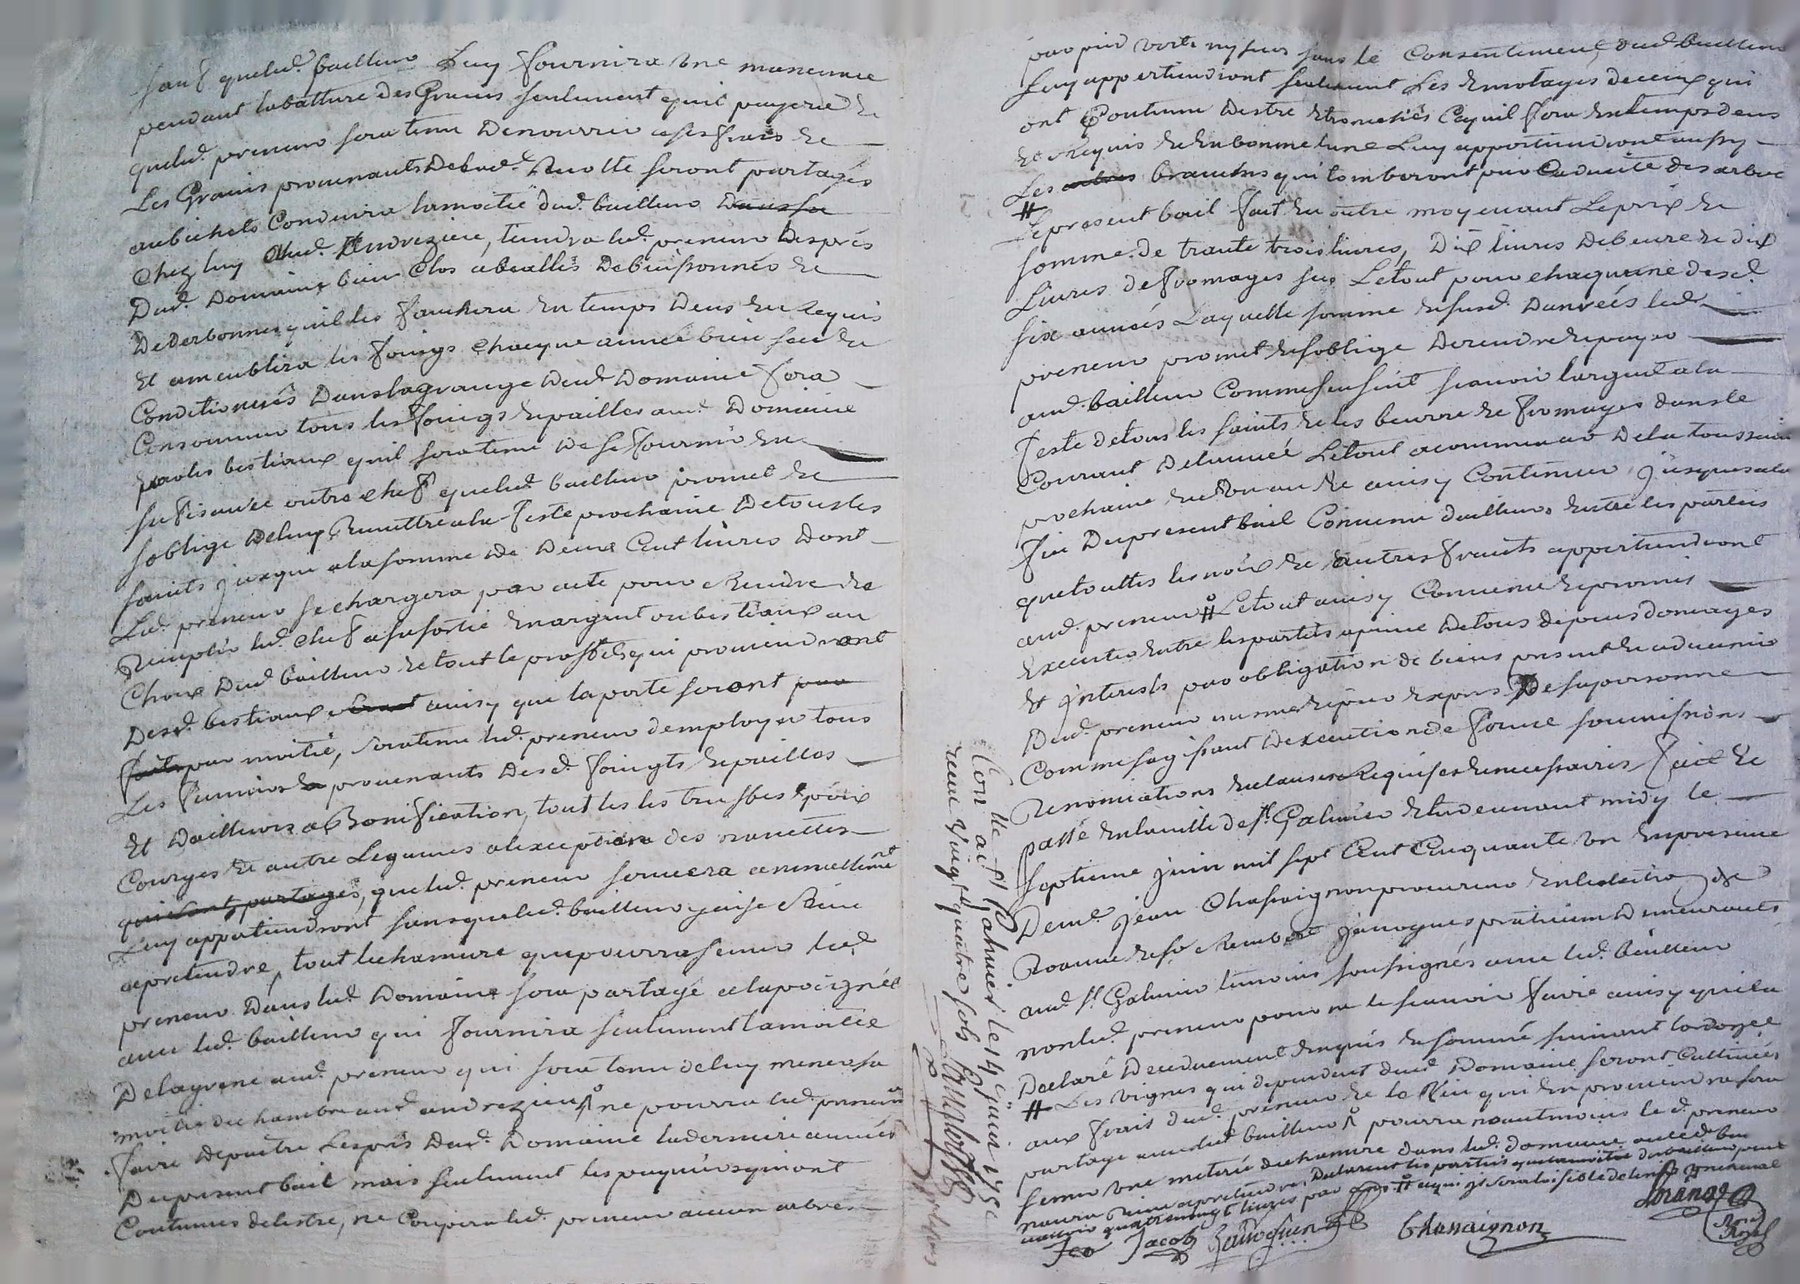 sauf quelud. bailleur luy fournira une maneuvre
pendant labatture des Grains seulement quil payera &
quelud. preneur sera tenu de nourrir a ses frais &
Les Grains provenants de lad. Recolte seront partagés
au bichet Conduira la moitié dud. bailleur
chez luy aud. Andrezieu, tiendra lud. preneur les prés
Dud. Domaine bien Clos
quil les fauchera en temps deus & requis
Et ameublira les foings chaque année bien secs &
Conditionnés Dans la grange dud. Domaine fera
Consommer tous les foings & pailles aud. Domaine
par les bestiaux quil sera tenu de se fournir en
sufisance outre chef que lud. bailleur promet &
soblige de luy Remettre a la feste prochaine de tous les
saints jusque a la somme de Deux Cent livres Dont
Lud. preneur se chargera par acte pour Rendre &
Remplir lud. chef a sa sortie en argent ou bestiaux au
Choix Dud. bailleur & tout le proffit qui proviendront
Desd. bestiaux ainsy que la perte seront
par moitié, sera tenu lud. preneur demployer tous
Les fumiers provenants desd. foingts & pailles
Et Dailleurs a Bonification, toutes les truffes, & poix
Courges & autre Legumes a lexception des navettes
que lud. preneur semera
Luy appartiendront sans que lud. bailleur y puisse Rien
a pretendre, tout le chanvre que pourra semer lud.
preneur Dans lud. Domaine sera partagé a la poignée
avec lud. bailleur qui fournira seulement la moitié
De la grene aud. preneur qui sera tenu de luy mener sa
moitié du chanvre aud. andrezieu ne pourra lud. preneur
faire depaitre Les prés Dud. Domaine la derniere année
Du present bail mais seulement les paquerages qui ont
Coutumes de lestre, ne Coupera lud. preneur aucun arbres
par pied verts ny secs sans le Consentement dud. bailleur
Luy appartiendront seulement Les Emotages de ceux qui
ont Coutume destre Etronchés Ce quil fera en temps deus
et Requis & en bonne lune Luy appartiendront aussy
Les branches qui tomberont par Caducité des arbres
# Le present bail fait en outre moyenant Le prix &
somme de trante trois livres, Dix livres De beure & dix
Livres de fromages secs Le tout pour chaqune desd.
six années Laquelle somme & susd. Danrées lud.
preneur promet & soblige De rendre & payer
aud. bailleur Comme sensuit scavoir largent a la
feste de tous les saints & les beurre & fromages dans le
Courant de lannée Le tout a commencer De la toussaint
prochaine & ainsy Continuer jusques a la
fin Du present bail Convenu dailleurs Entre les parties
que touttes les noix & autres fruits appartiendront
aud. preneur # Le tout ainsy Convenu & promis
Executer Entre les parties a peine De tous depens domages
Et jnterests par obligation de biens presents & advenir
Dud. preneur mesme & par Expres De sa personne
Comme sagissant Dexecution de ferme soumissions
Renonciations & clauses Requises & necessaires fait &
passé En la ville de St. Galmier Etude avant midy le
septieme juin mil sept Cent Cinquante un En presence
De me. jean Chassaignon procureur
Roanne & sr. Rembert demeurants
aud. St. Galmier temoins soussignés avec lud. bailleur
non lud. preneur pour ne le scavoir faire ainsy quil a
Declaré De ce duement Enquis & sommé suivant lordonnee
# Les vignes qui dependent dud. Domaine seront Cultivées
aux frais dud. preneur & le Vin qui En proviendra sera
partagé avec lud. bailleur pourra neantmoins led. preneur
semer une meterée du chanvre dans lud. domaine ou led. bailleur
naura Rien a pretendre,
Jacob
Chassaignon
Con.lle a St. Galmier le 14e. juin 1751
Receu Vingt quatre sols